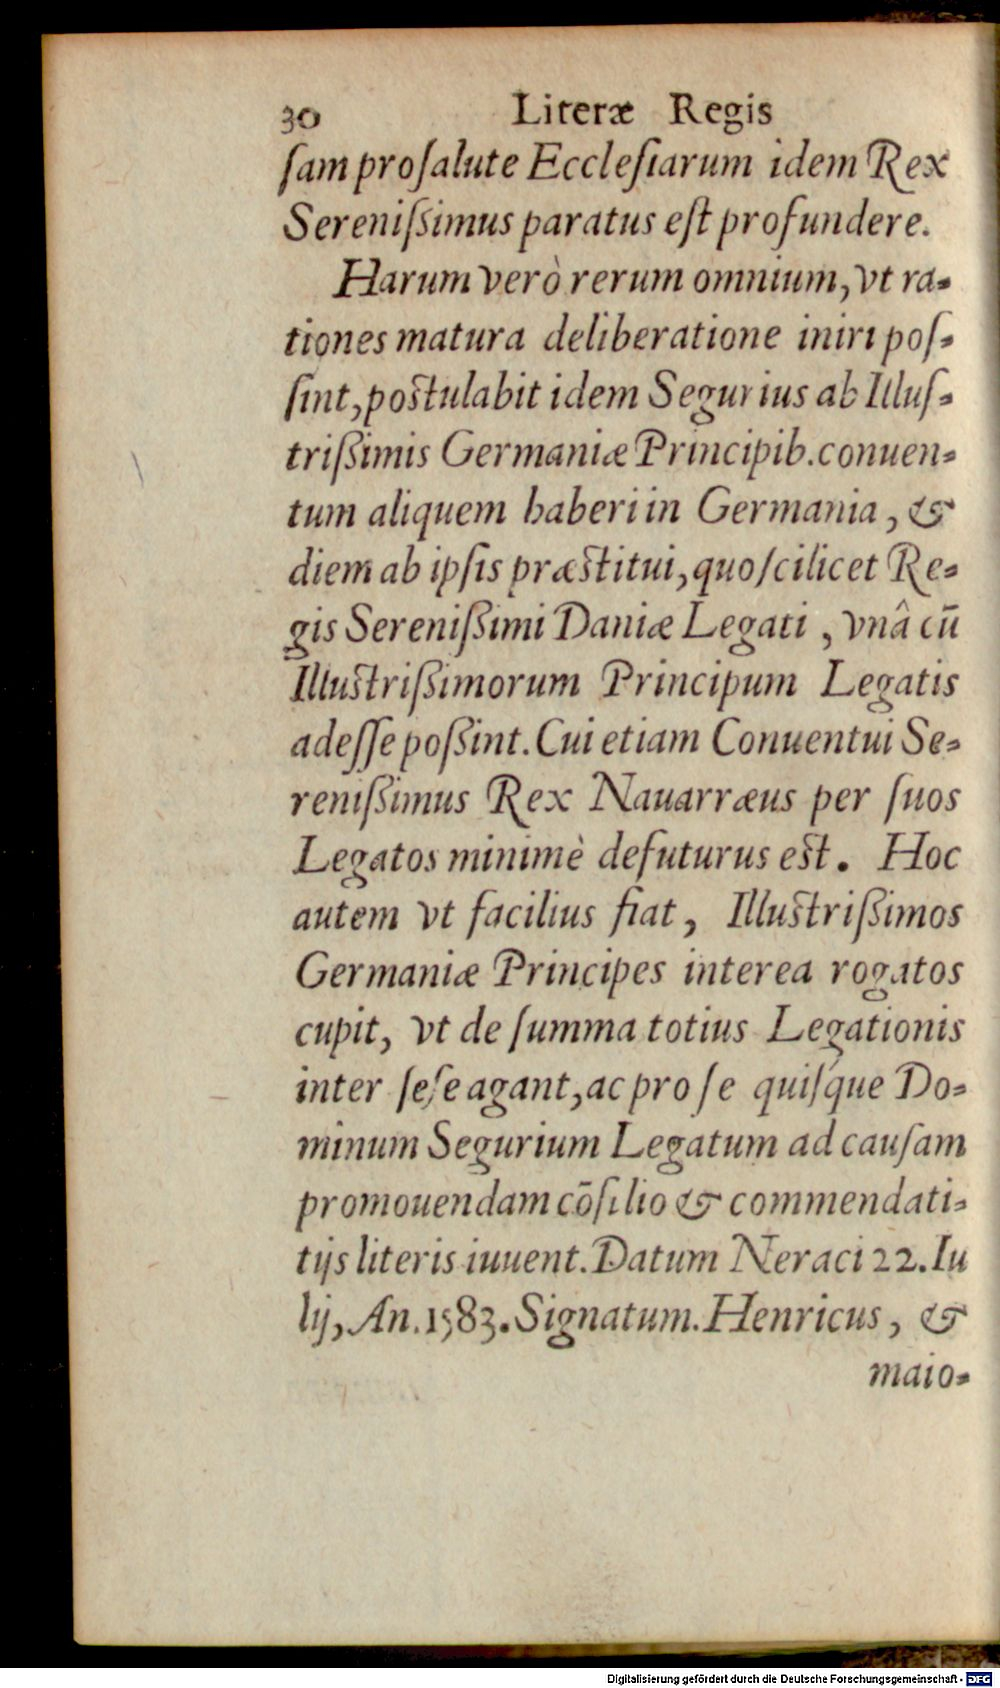 30 Literæ Regis
ſam pro ſalute Eccleſiarum idem Rex
Sereniſsimus paratus eſt profundere.
Harum verò rerum omnium, vt ra-
tiones matura deliberatione iniri poſ-
ſint, poſtulabit idem Segurius ab Illuſ-
triſsimis Germaniæ Principib. conuen-
tum aliquem haberi in Germania, &
diem ab ipſis præſtitui, quo ſcilicet Re-
gis Sereniſsimi Daniæ Legati, vnâ cū
Illuſtriſsimorum Principum Legatis
adeſſe poſsint. Cui etiam Conuentui Se-
reniſsimus Rex Nauarræus per ſuos
Legatos minimè defuturus eſt. Hoc
autem vt facilius fiat, Illuſtriſsimos
Germaniæ Principes interea rogatos
cupit, vt de ſumma totius Legationis
inter ſeſe agant, ac pro ſe quiſque Do-
minum Segurium Legatum ad cauſam
promouendam cōſilio & commendati-
tijs literis iuuent. Datum Neraci 22. Iu
lij, An. 1583. Signatum. Henricus, &
maio-
Digitalisierung gefördert durch die Deutsche Forschungsgemeinschaft - DFG